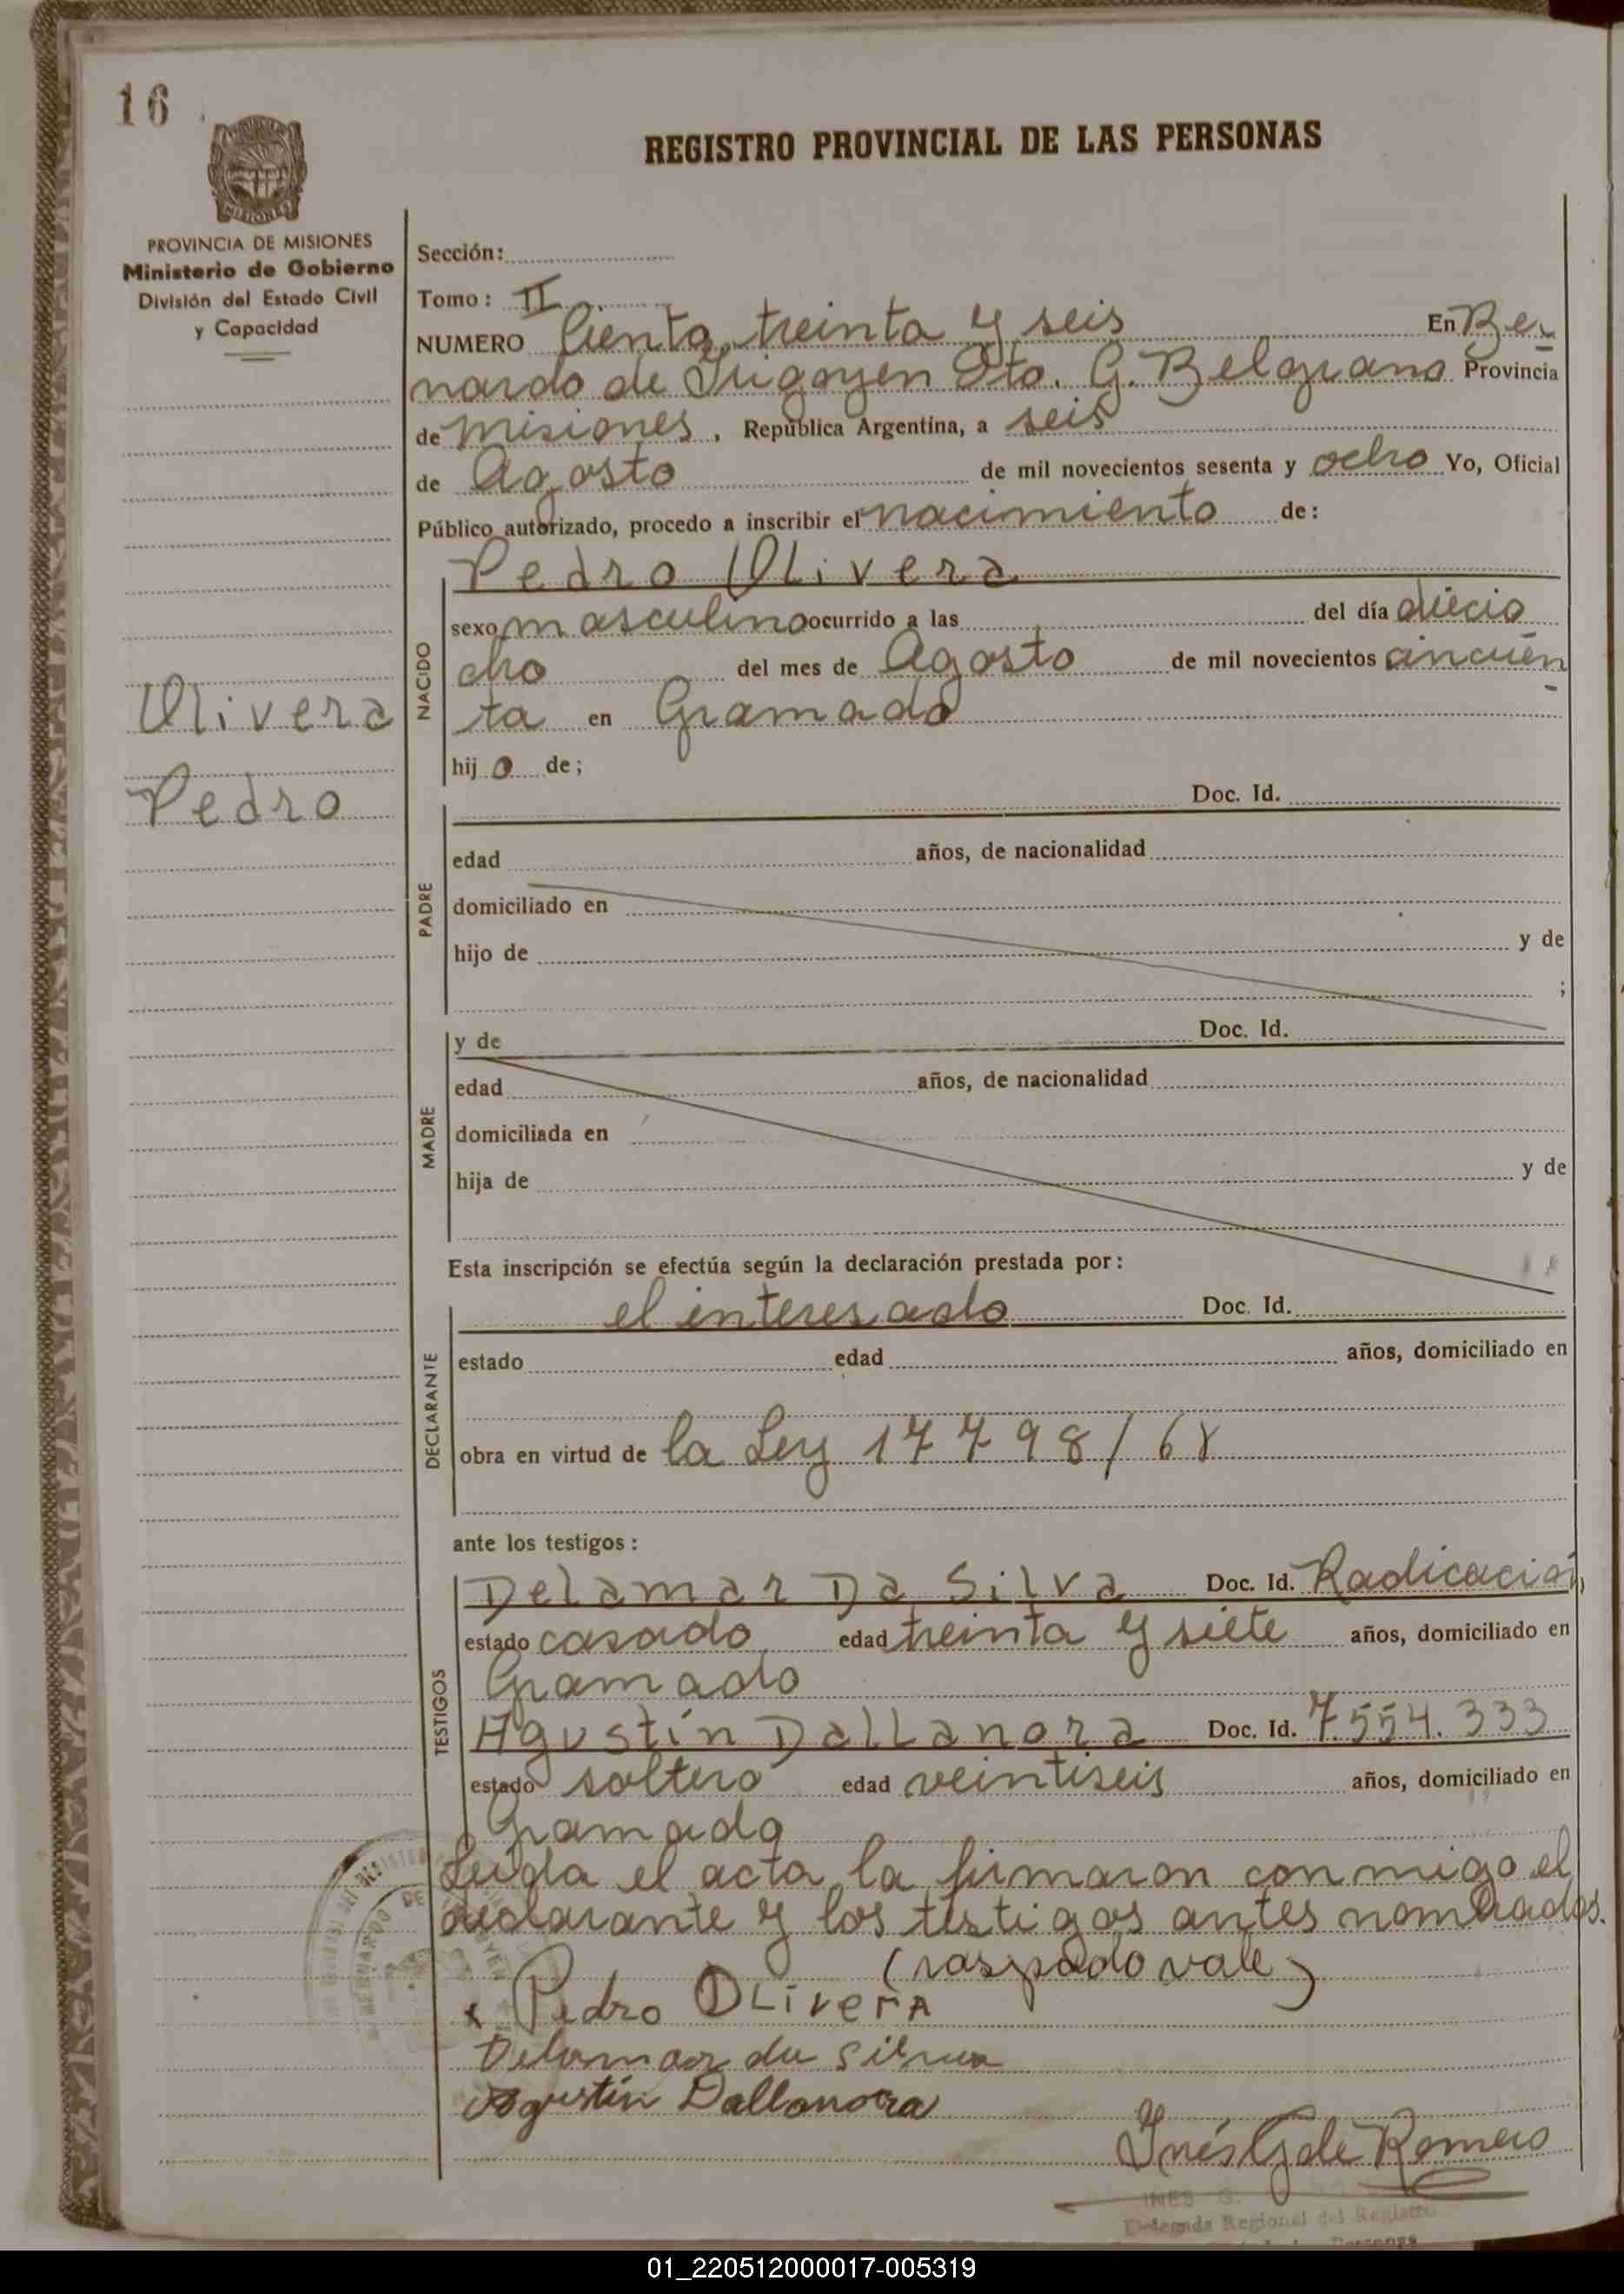 16
REGISTRO PROVINCIAL DE LAS PERSONAS
MISIONES
PROVINCIA DE MISIONES
Ministerio de Gobierno
División del Estado Civil
y Capacidad
Sección:
Tomo: II
NUMERO Ciento treinta y seis En Ber
nardo de Irigoyen Dto. G. Belgrano Provincia
de Misiones, República Argentina, a seis
de Agosto de mil novecientos sesenta y ocho Yo, Oficial
Público autorizado, procedo a inscribir el nacimiento de:
Pedro Olivera
NACIDO
sexo masculino ocurrido a las del día diecio
cho del mes de Agosto de mil novecientos cincuen
ta en Gramado
Olivera
hijo de;
Pedro
Doc. Id.
PADRE
edad años, de nacionalidad
domiciliado en
hijo de y de
;
y de Doc. Id.
MADRE
edad años, de nacionalidad
domiciliada en
hija de y de
Esta inscripción se efectúa según la declaración prestada por:
el interesado Doc. Id.
DECLARANTE
estado edad años, domiciliado en
obra en virtud de la Ley 17798/68
ante los testigos:
TESTIGOS
Delamar Da Silva Doc. Id. Radicación
estado casado edad treinta y siete años, domiciliado en
Gramado
Agustín Dallanora Doc. Id. 7.554.333
estado soltero edad veintiseis años, domiciliado en
Gramado
Leída el acta, la firmaron conmigo el
declarante y los testigos antes nombrados.
(raspado vale)
x Pedro OLiverA
Delamar da Silva
Agustín Dallanora
Inés G de Romero
INES G.
Delegada Regional del Registro
Personas
01_220512000017-005319